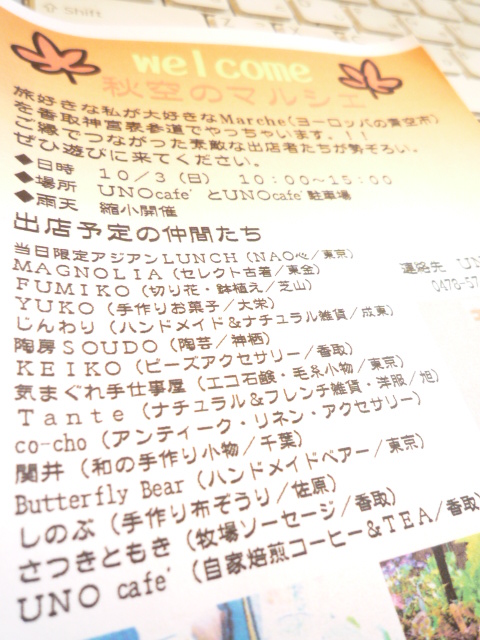 Shift
welcome
秋空のマルシェ
旅好きな私が大好きなMarche(ヨーロッパの青空市)
を香取神宮表参道でやっちゃいます．！！
ご縁でつながった素敵な出店者たちが勢ぞろい。
ぜひ遊びに来てください。
◆日時　１０／３（日）　１０：００～１５：００
◆場所　ＵＮＯcafe'とＵＮＯcafe'駐車場
◆雨天　縮小開催
出店予定の仲間たち
当日限定アジアンＬＵＮＣＨ（ＮＡＯ心／東京）
ＭＡＧＮＯＬＩＡ（セレクト古着／東金）
ＦＵＭＩＫＯ（切り花・鉢植え／芝山）
連絡先　ＵＮ
ＹＵＫＯ（手作りお菓子／大栄）
0478-57
じんわり（ハンドメイド＆ナチュラル雑貨／成東）
陶房ＳＯＵＤＯ（陶芸／神栖）
ＫＥＩＫＯ（ビーズアクセサリー／香取）
気まぐれ手仕事屋（エコ石鹸・毛糸小物／東京）
Ｔａｎｔｅ（ナチュラル＆フレンチ雑貨・洋服／旭）
co-cho（アンティーク・リネン・アクセサリー）
関井（和の手作り小物／千葉）
Butterfly Bear（ハンドメイドベアー／東京）
しのぶ（手作り布ぞうり／佐原）
さつきともき（牧場ソーセージ／香取）
ＵＮＯ cafe'（自家焙煎コーヒー＆ＴＥＡ／香取）